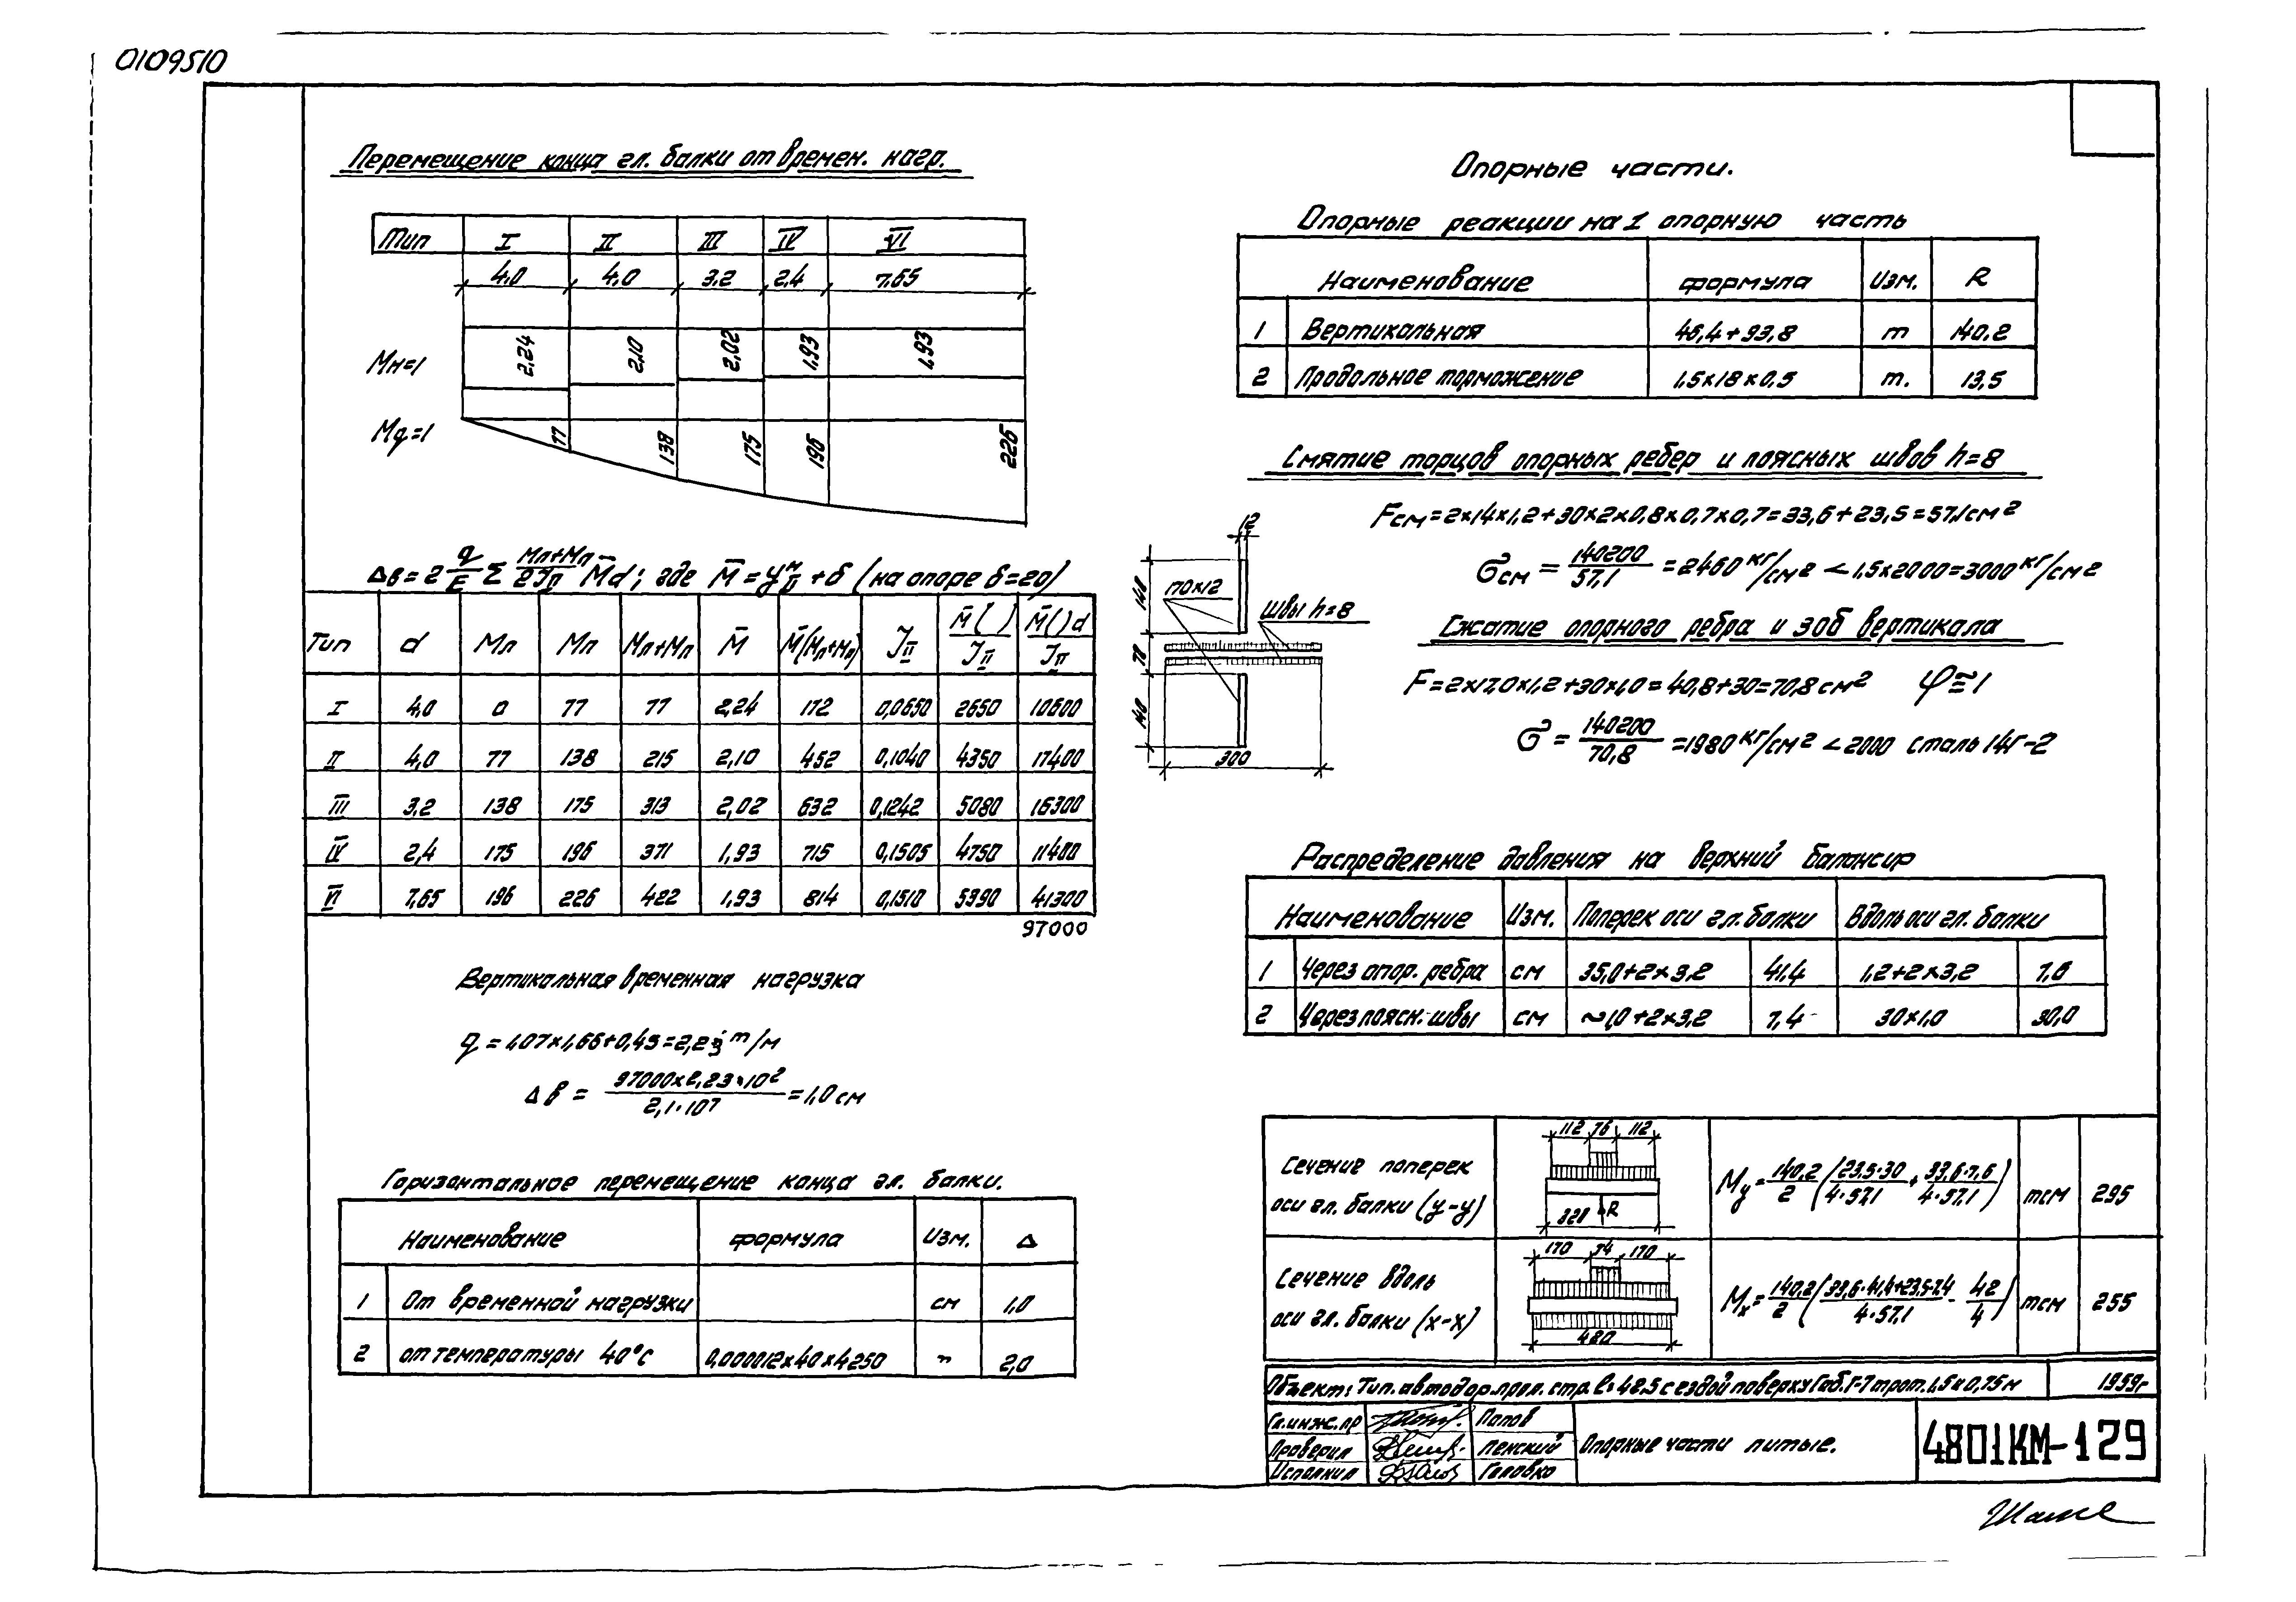 0109510
Перемещение конца гл. балки от времен. нагр.
Тип I II III IV VI
4,0 4,0 3,2 2,4 7,65
Mн=1 2,24 2,10 2,02 1,93 1,93
Mq=1 77 138 175 196 226
Δв = 2 q/E Σ (Mл+Mп)/(2JII) M̄d; где M̄ = yнII + δ (на опоре δ=20)
Тип d Mл Mп Mл+Mп M̄ M̄(Mл+Mп) JII M̄( )/JII M̄( )d/JII
I 4,0 0 77 77 2,24 172 0,0650 2650 10600
II 4,0 77 138 215 2,10 452 0,1040 4350 17400
III 3,2 138 175 313 2,02 632 0,1242 5080 16300
IV 2,4 175 196 371 1,93 715 0,1505 4750 11400
VI 7,65 196 226 422 1,93 814 0,1510 5390 41300
97000
Вертикальная временная нагрузка
q = 1,07×1,66+0,45=2,23 т/м
Δв = 97000×2,23·10²/2,1·10⁷ = 1,0 см
Горизонтальное перемещение конца гл. балки.
Наименование формула Изм. Δ
1 От временной нагрузки см 1,0
2 от температуры 40°С 0,000012×40×4250 " 2,0
Опорные части.
Опорные реакции на 1 опорную часть
Наименование формула Изм. R
1 Вертикальная 46,4+93,8 т 140,2
2 Продольное торможение 1,5×18×0,5 т. 13,5
Смятие торцов опорных ребер и поясных швов h=8
Fсм=2×14×1,2+30×2×0,8×0,7×0,7=33,6+23,5=57,1см²
σсм = 140200/57,1 = 2460 кг/см² < 1,5×2000=3000 кг/см²
12
140
170×12
швы h=8
78
140
300
Сжатие опорного ребра и зоб вертикала
F=2×17,0×1,2+30×1,0=40,8+30=70,8 см² φ≅1
σ = 140200/70,8 =1980 кг/см² <2000 сталь 14Г-2
Распределение давления на верхний балансир
Наименование Изм. Поперек оси гл. балки Вдоль оси гл. балки
1 Через опор. ребра см 35,0+2×3,2 41,4 1,2+2×3,2 7,6
2 Через поясн. швы см ~1,0+2×3,2 7,4 30×1,0 30,0
112 76 112
Сечение поперек
оси гл. балки (y-y)
320 R
My=140,2/2 (23,5·30/4·57,1 + 33,6·7,6/4·57,1) тсм 295
170 74 170
Сечение вдоль
оси гл. балки (x-x)
480
Mx=140,2/2 (33,6·41,4+23,5·7,4/4·57,1 - 42/4) тсм 255
Объект: Тип. автодор. прол. стр. l=42.5 с ездой поверху Габ. Г-7 трот. 1,5 и 0,75м 1959г
Гл.инж.пр Попов
Проверил Пенский
Исполнил Головко
Опорные части литые.
4801КМ-129